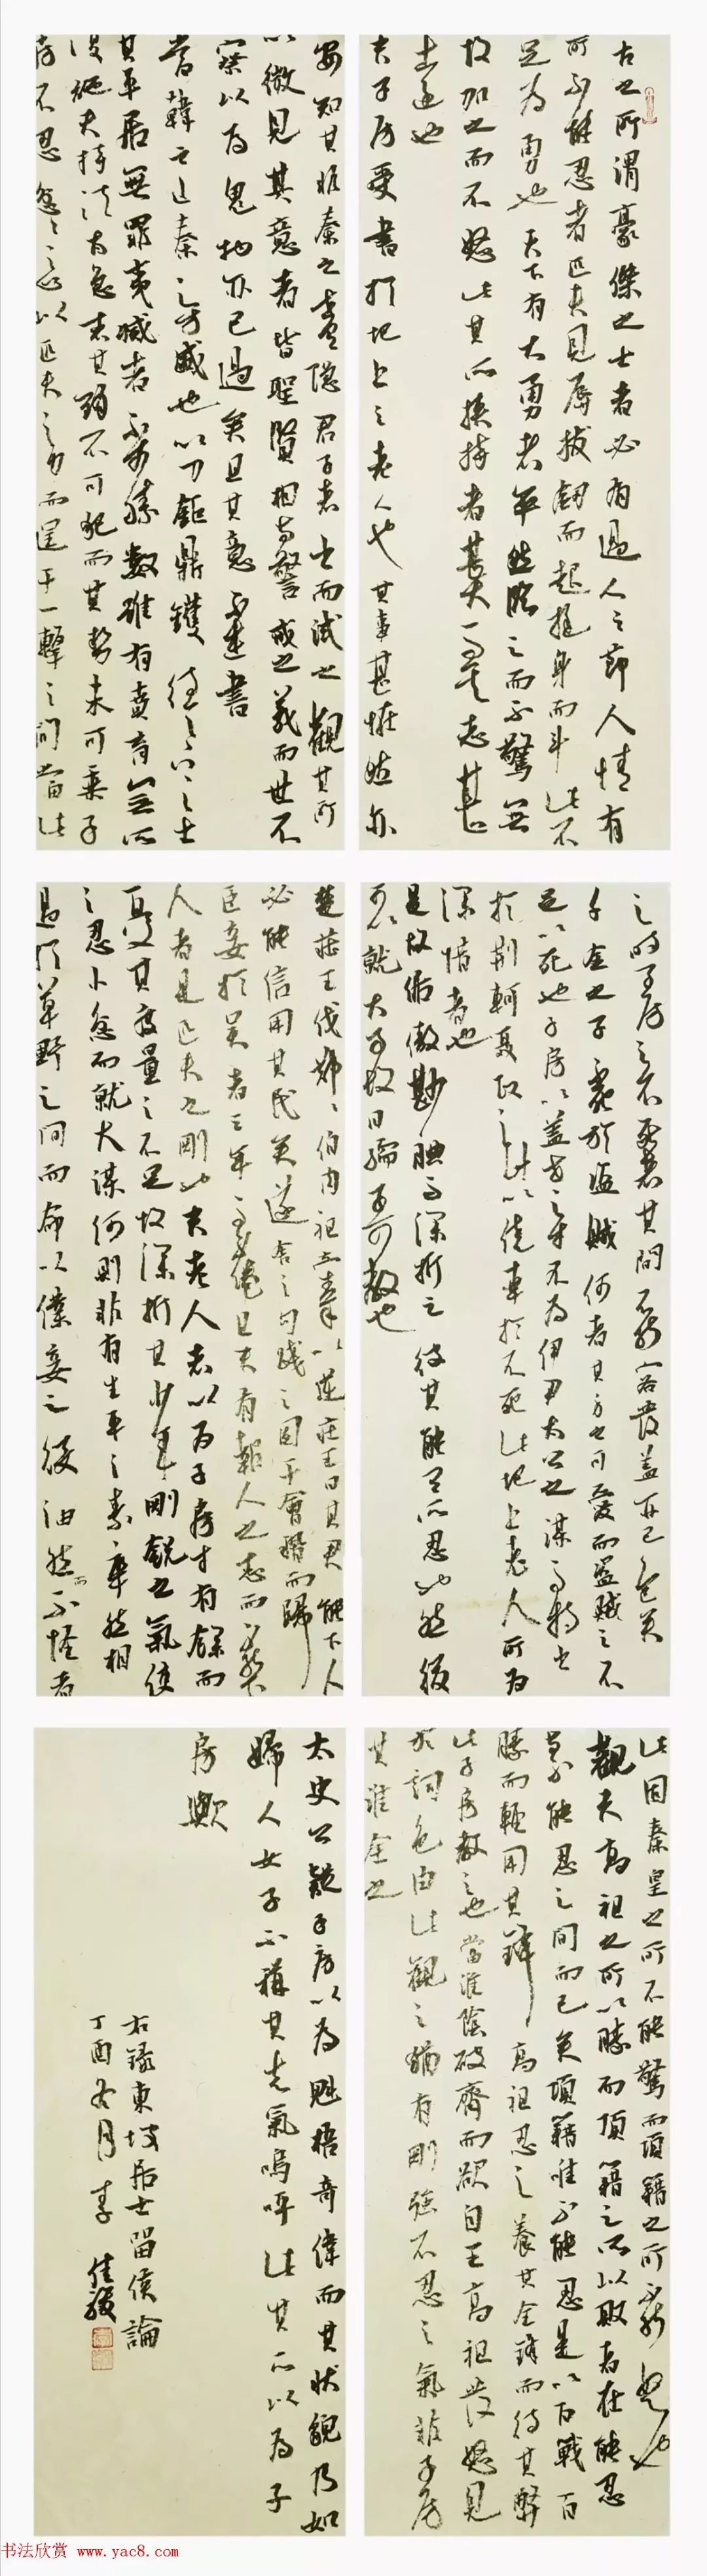 古之所謂豪傑之士者必有過人之節人情有
所不能忍者匹夫見辱拔劍而起挺身而斗此不
足為勇也天下有大勇者卒然臨之而不驚無
故加之而不怒此其所挾持者甚大而其志甚
遠也
夫子房受書於圯上之老人也其事甚怪然亦
安知其非秦之世有隱君子者出而試之觀其所
以微見其意者皆聖賢相與警戒之義而世不
察以為鬼物亦已過矣且其意不在書
當韓之亡秦之方盛也以刀鋸鼎鑊待天下之士
其平居無罪夷滅者不可勝數雖有賁育無所
復施夫持法太急者其鋒不可犯而其勢未可乘子
房不忍忿忿之心以匹夫之力而逞于一擊之間當此
之時子房之不死者其間不能容髮蓋亦已危矣
千金之子死於盜賊何者其身之可愛而盜賊之不
足以死也子房以蓋世之才不為伊尹太公之謀而特出
於荊軻聶政之計以僥幸於不死此圯上老人所為
深惜者也
是故倨傲鮮腆而深折之彼其能有所忍也然後
可以就大事故曰孺子可教也
楚莊王伐鄭鄭伯肉袒牽羊以迎莊王曰其君能下人
必能信用其民矣遂舍之句踐之困于會稽而歸
臣妾於吳者三年而不倦且夫有報人之志而不能下
人者是匹夫之剛也夫老人者以為子房才有餘而
憂其度量之不足故深折其少年剛銳之氣使
之忍小忿而就大謀何則非有生平之素卒然相
遇於草野之間而命以僕妾之役油然而不怪者
此固秦皇之所不能驚而項籍之所不能怒也
觀夫高祖之所以勝而項籍之所以敗者在能忍
與不能忍之間而已矣項籍唯不能忍是以百戰百
勝而輕用其鋒高祖忍之養其全鋒而待其弊
此子房教之也當淮陰破齊而欲自王高祖發怒見
於詞色由此觀之猶有剛強不忍之氣非子房
其誰全之
太史公疑子房以為魁梧奇偉而其狀貌乃如
婦人女子不稱其志氣嗚呼此其所以為子
房歟
右錄東坡居士留侯論
丁酉冬月李佳駿
书法欣赏 www.yac8.com